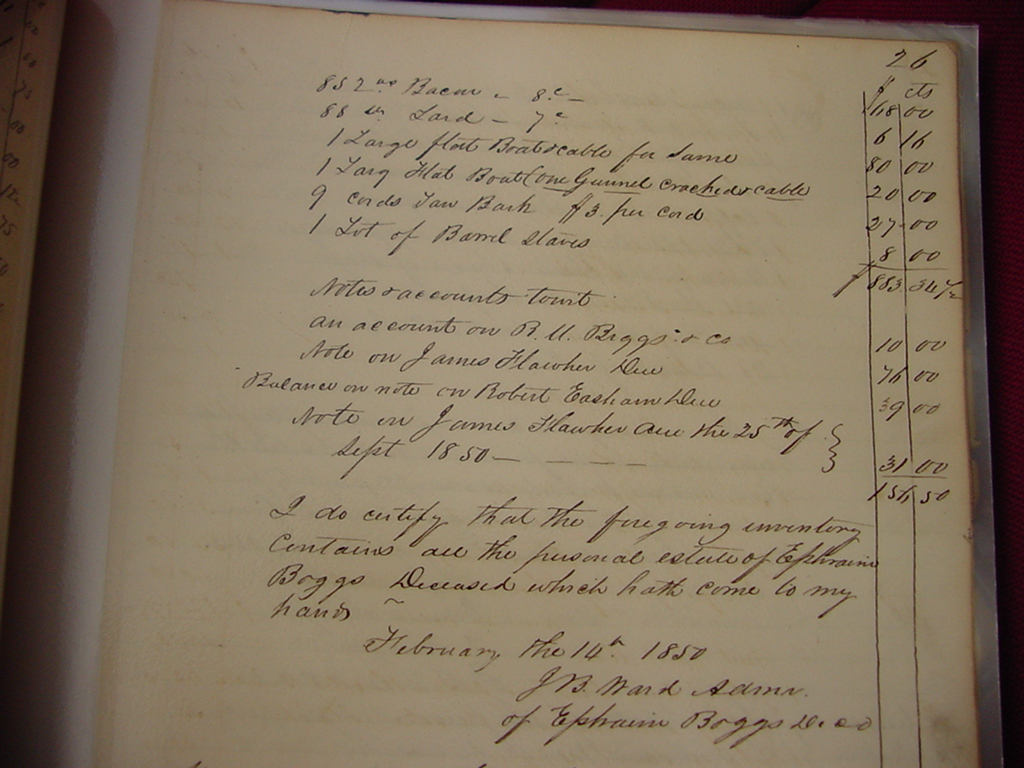 26
$ cts
852 lbs Bacon - 8c - 68 00
88 lb Lard - 7c 6 16
1 Large flat Boat & cable for same 80 00
1 Larg Flat Boat (one Gunnel cracked & cable 20 00
9 Cords Tan Bark $3 per Cord 27 00
1 Lot of Barrel Staves 8 00
$ 883 34 1/2
Notes & accounts to wit
an account on R. H. Biggs & Co 10 00
Note on James Hawkes due 76 00
Balance on note on Robert Eastam due 39 00
Note on James Hawkes due the 25th of }
Sept 1850 - - - - 31 00
154 50
I do certify that the foregoing inventory
Contains all the personal estate of Ephraim
Boggs Deceased which hath come to my
hands ~
February the 14th 1850
J B Ward Admr.
of Ephraim Boggs Decd